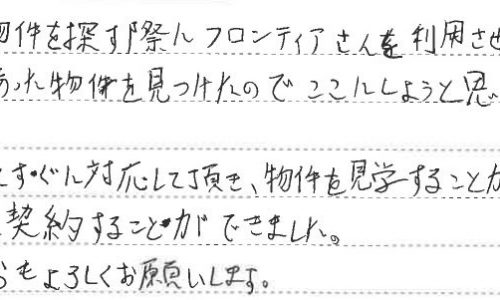 物件を探す際に フロンティアさんを 利用させ
あった物件を見つけたので ここにしようと思
すぐに対応して頂き、物件を見学することが
契約することができました。
もよろしくお願いします。